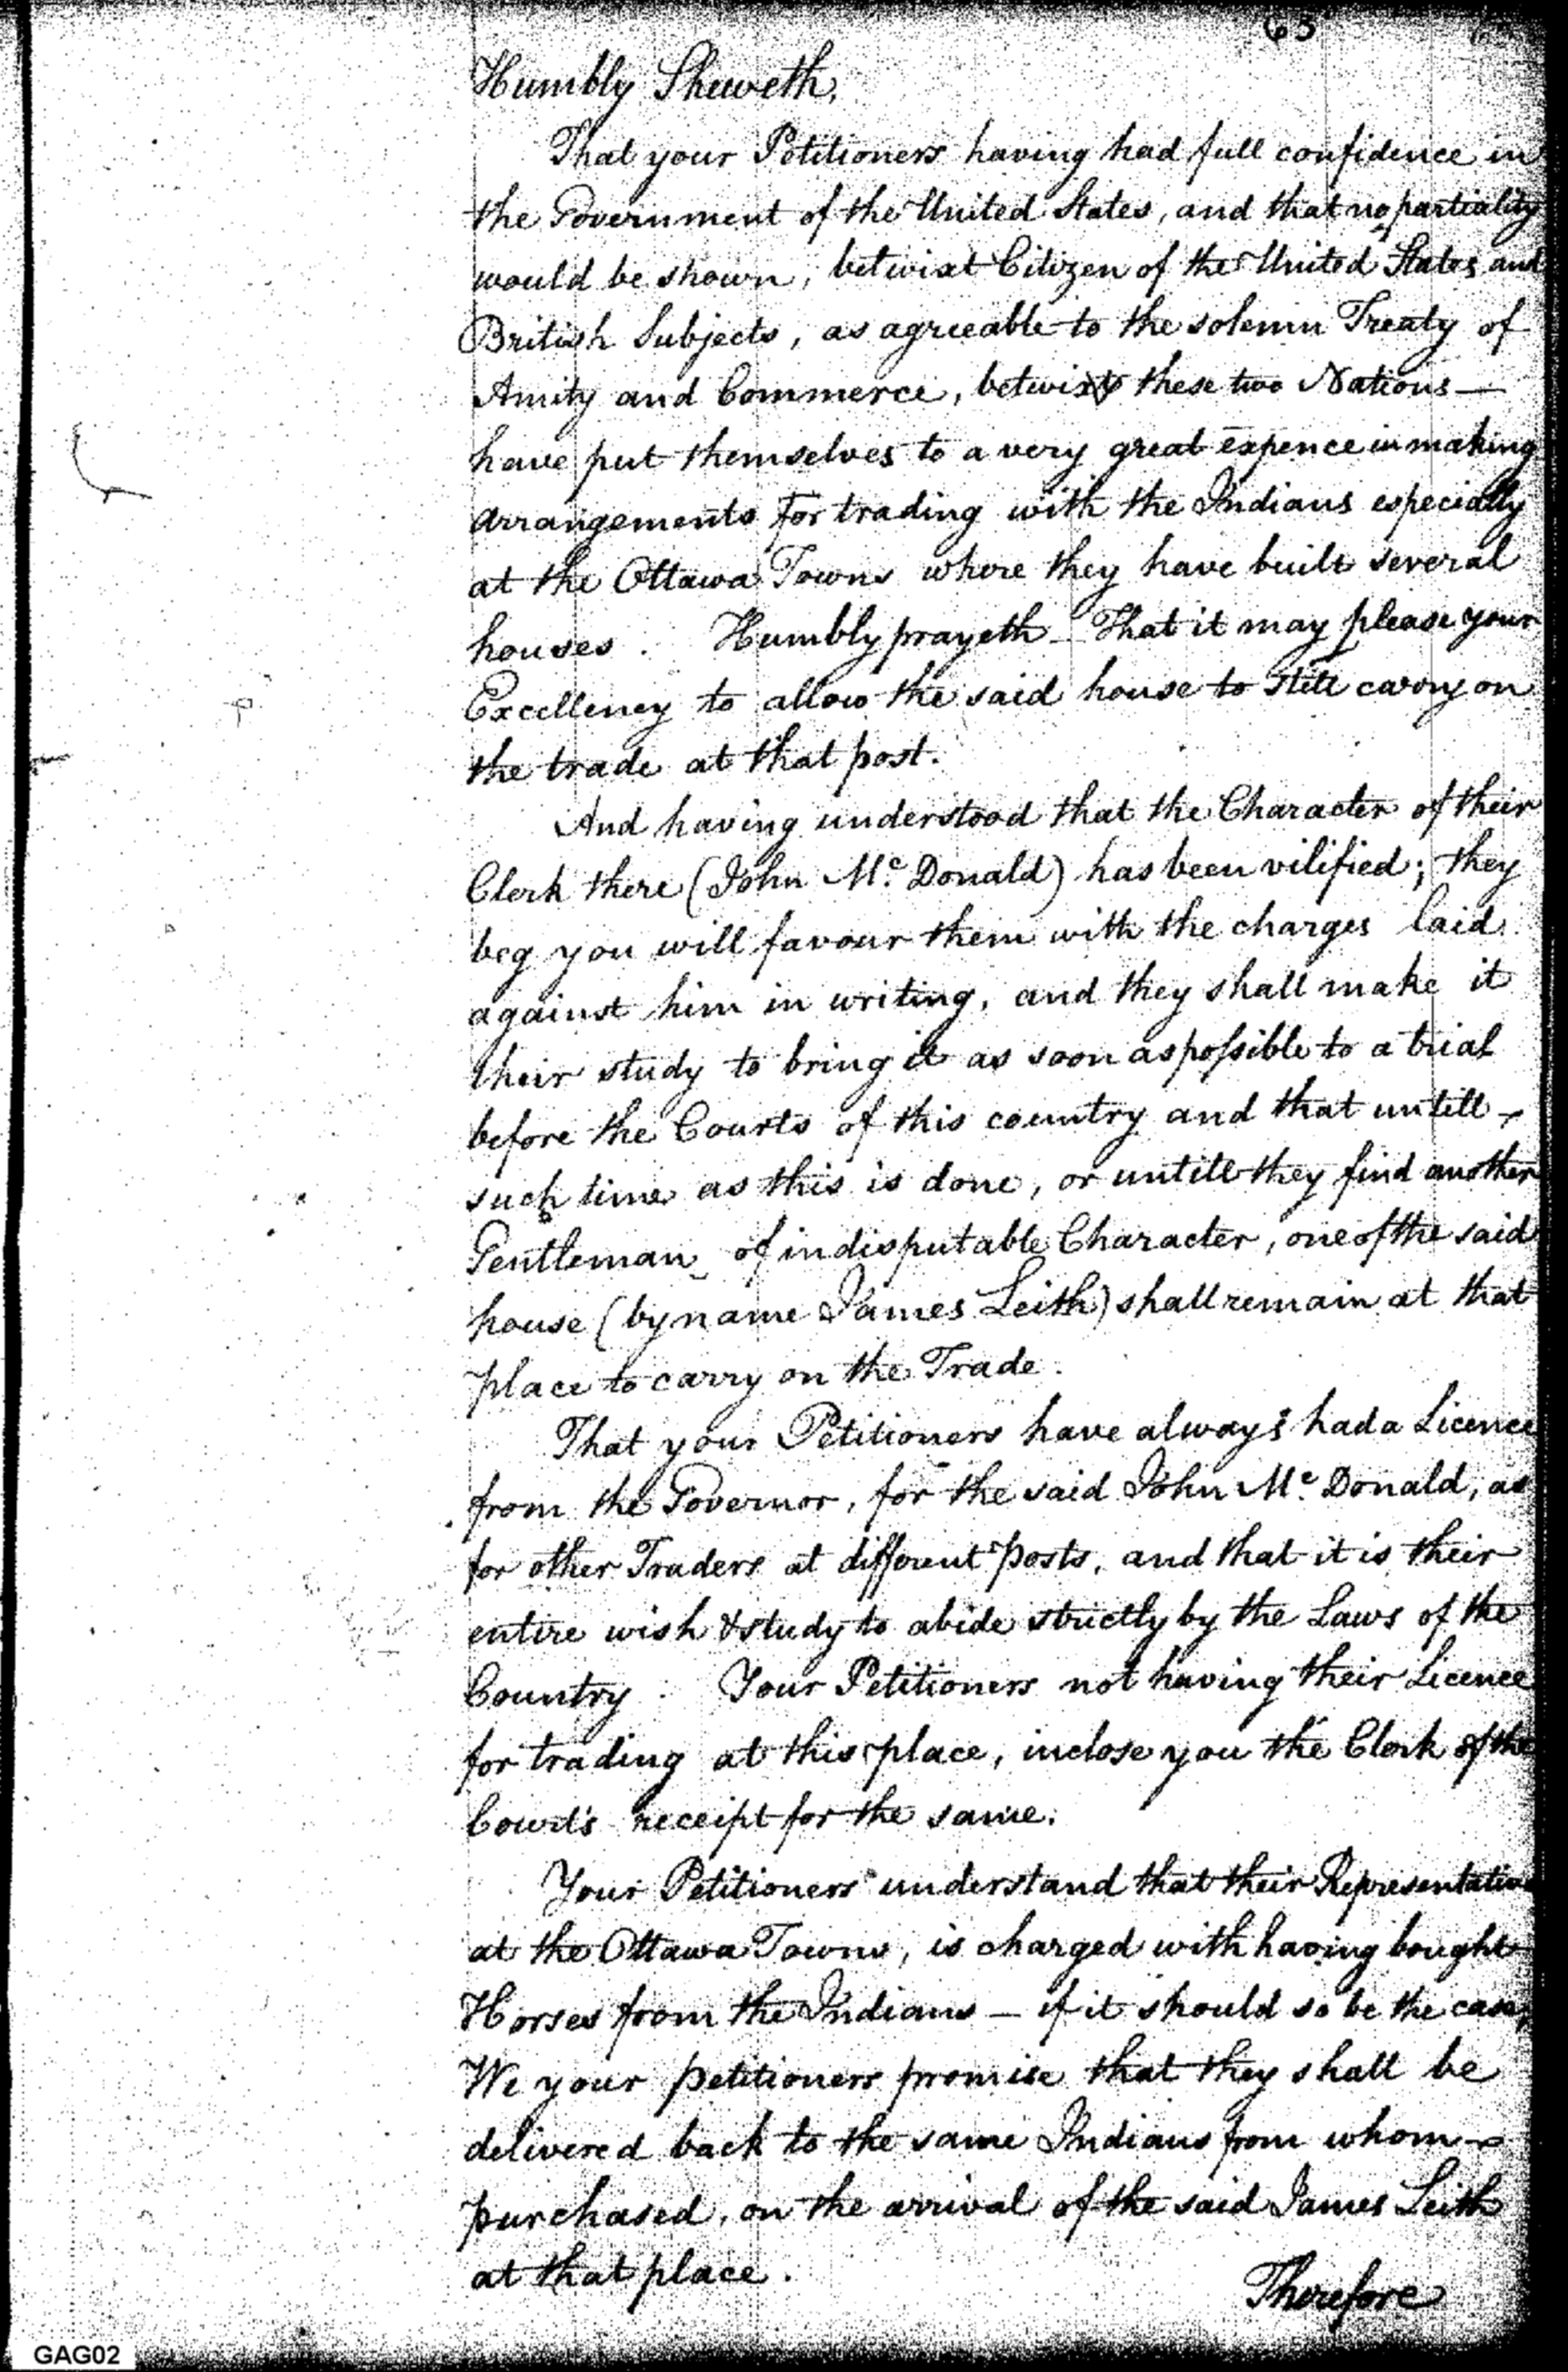 63
Humbly Sheweth,
That your Petitioners having had full confidence in
the Government of the United States, and that no partiality
would be shown, betwixt Citizen of the United States and
British Subjects, as agreeable to the solemn Treaty of
Amity and Commerce, betwixt these two Nations —
have put themselves to a very great expence in making
arrangements for trading with the Indians especially
at the Ottawa Towns where they have built several
houses. Humbly prayeth — That it may please your
Excellency to allow the said house to still carry on
the trade at that post.
And having understood that the Character of their
Clerk there (John Mc. Donald) has been vilified; they
beg you will favour them with the charges laid
against him in writing, and they shall make it
their study to bring it as soon as possible to a trial
before the Courts of this country and that untill
such time as this is done, or untill they find another
Gentleman of indisputable Character, one of the said
house (by name James Leith) shall remain at that
place to carry on the Trade.
That your Petitioners have always had a Licence
from the Governor, for the said John Mc. Donald, as
for other Traders at different posts, and that it is their
entire wish & study to abide strictly by the Laws of the
Country. Your Petitioners not having their Licence
for trading at this place, inclose you the Clerk of the
Court's receipt for the same.
Your Petitioners understand that their Representative
at the Ottawa Towns, is charged with having bought
Horses from the Indians — if it should so be the case,
We your petitioners promise that they shall be
delivered back to the same Indians from whom
purchased, on the arrival of the said James Leith
at that place.
Therefore
GAG02